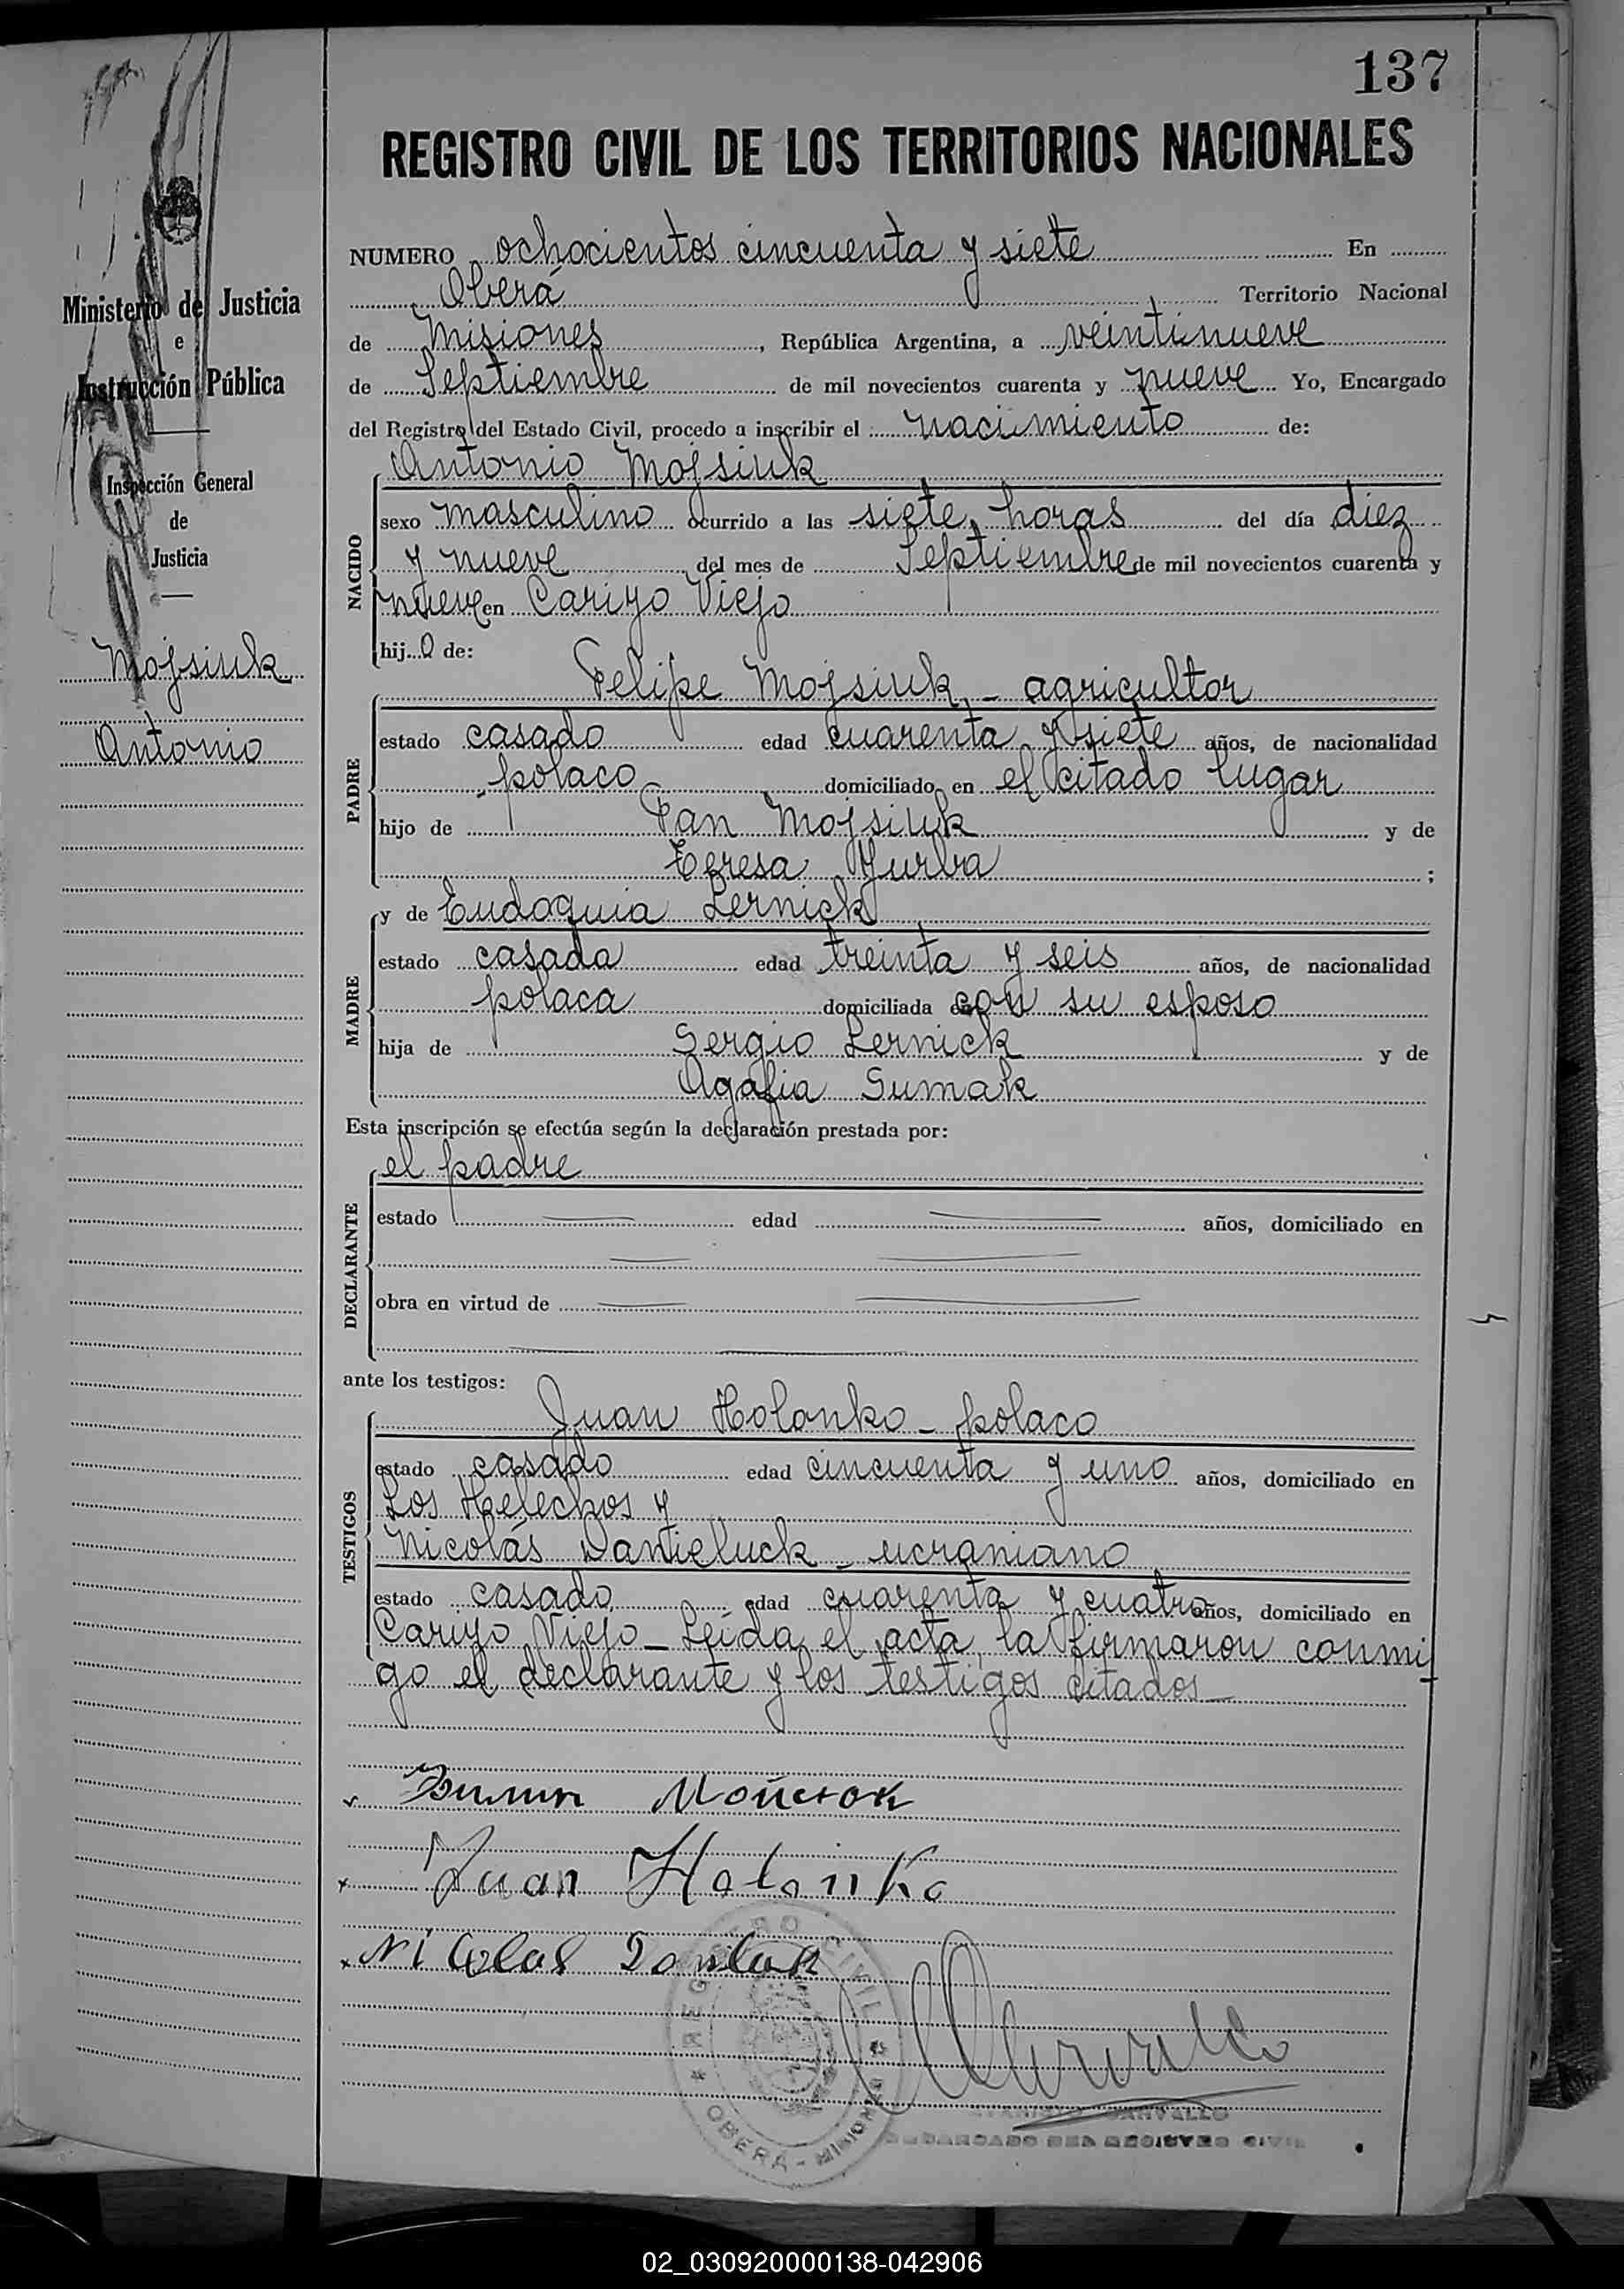 137
REGISTRO CIVIL DE LOS TERRITORIOS NACIONALES
Ministerio de Justicia
e
Instrucción Pública
Inspección General
de
Justicia
Mojsiuk
Antonio
NUMERO ochocientos cincuenta y siete En
Oberá Territorio Nacional
de Misiones, República Argentina, a veintinueve
de Septiembre de mil novecientos cuarenta y nueve Yo, Encargado
del Registro del Estado Civil, procedo a inscribir el nacimiento de:
NACIDO
Antonio Mojsiuk
sexo masculino ocurrido a las siete horas del día diez
y nueve del mes de Septiembre de mil novecientos cuarenta y
nueve en Cariyo Viejo
hijo de:
PADRE
Felipe Mojsiuk - agricultor
estado casado edad cuarenta y siete años, de nacionalidad
polaco domiciliado en el citado lugar
hijo de Pan Mojsiuk y de
Teresa Yurba ;
MADRE
y de Eudoquia Lernick
estado casada edad treinta y seis años, de nacionalidad
polaca domiciliada con su esposo
hija de Sergio Lernick y de
Agafia Sumak
Esta inscripción se efectúa según la declaración prestada por:
DECLARANTE
el padre
estado edad años, domiciliado en
obra en virtud de
ante los testigos:
TESTIGOS
Juan Holonko - polaco
estado casado edad cincuenta y uno años, domiciliado en
Los Helechos y
Nicolás Danieluck - ucraniano
estado casado edad cuarenta y cuatro años, domiciliado en
Cariyo Viejo - Leída el acta, la firmaron conmi
go el declarante y los testigos citados
Филип Мойсюк
Juan Holonko
Nicolas
REGISTRO CIVIL
OBERÁ - MISIONES
CARVALLO
ENCARGADO DEL REGISTRO CIVIL
02_030920000138-042906